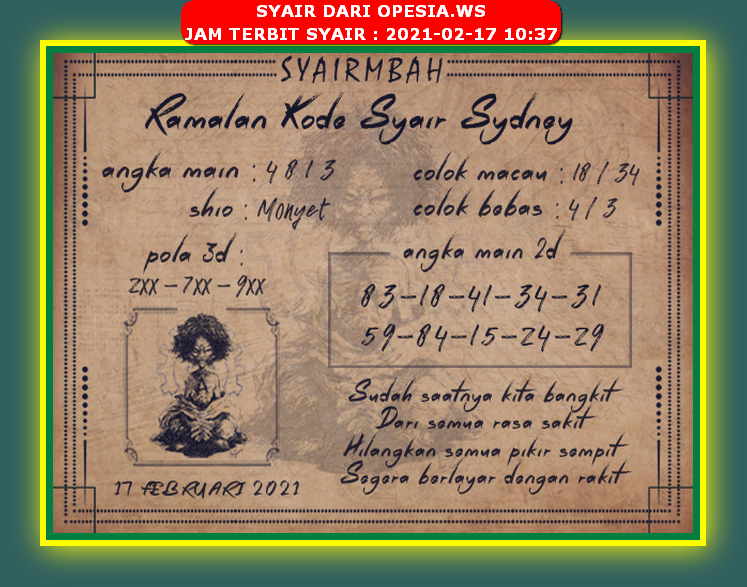 SYAIR DARI OPESIA.WS
JAM TERBIT SYAIR : 2021-02-17 10:37
SYAIRMBAH
Ramalan Kode Syair Sydney
angka main : 4 8 1 3
colok macau : 18 / 34
shio : Monyet
colok bebas : 4 / 3
pola 3d :
2XX - 7XX - 9XX
angka main 2d
83-18-41-34-31
59-84-15-24-29
Sudah saatnya kita bangkit
Dari semua rasa sakit
Hilangkan semua pikir sempit
Segera berlayar dengan rakit
17 FEBRUARI 2021